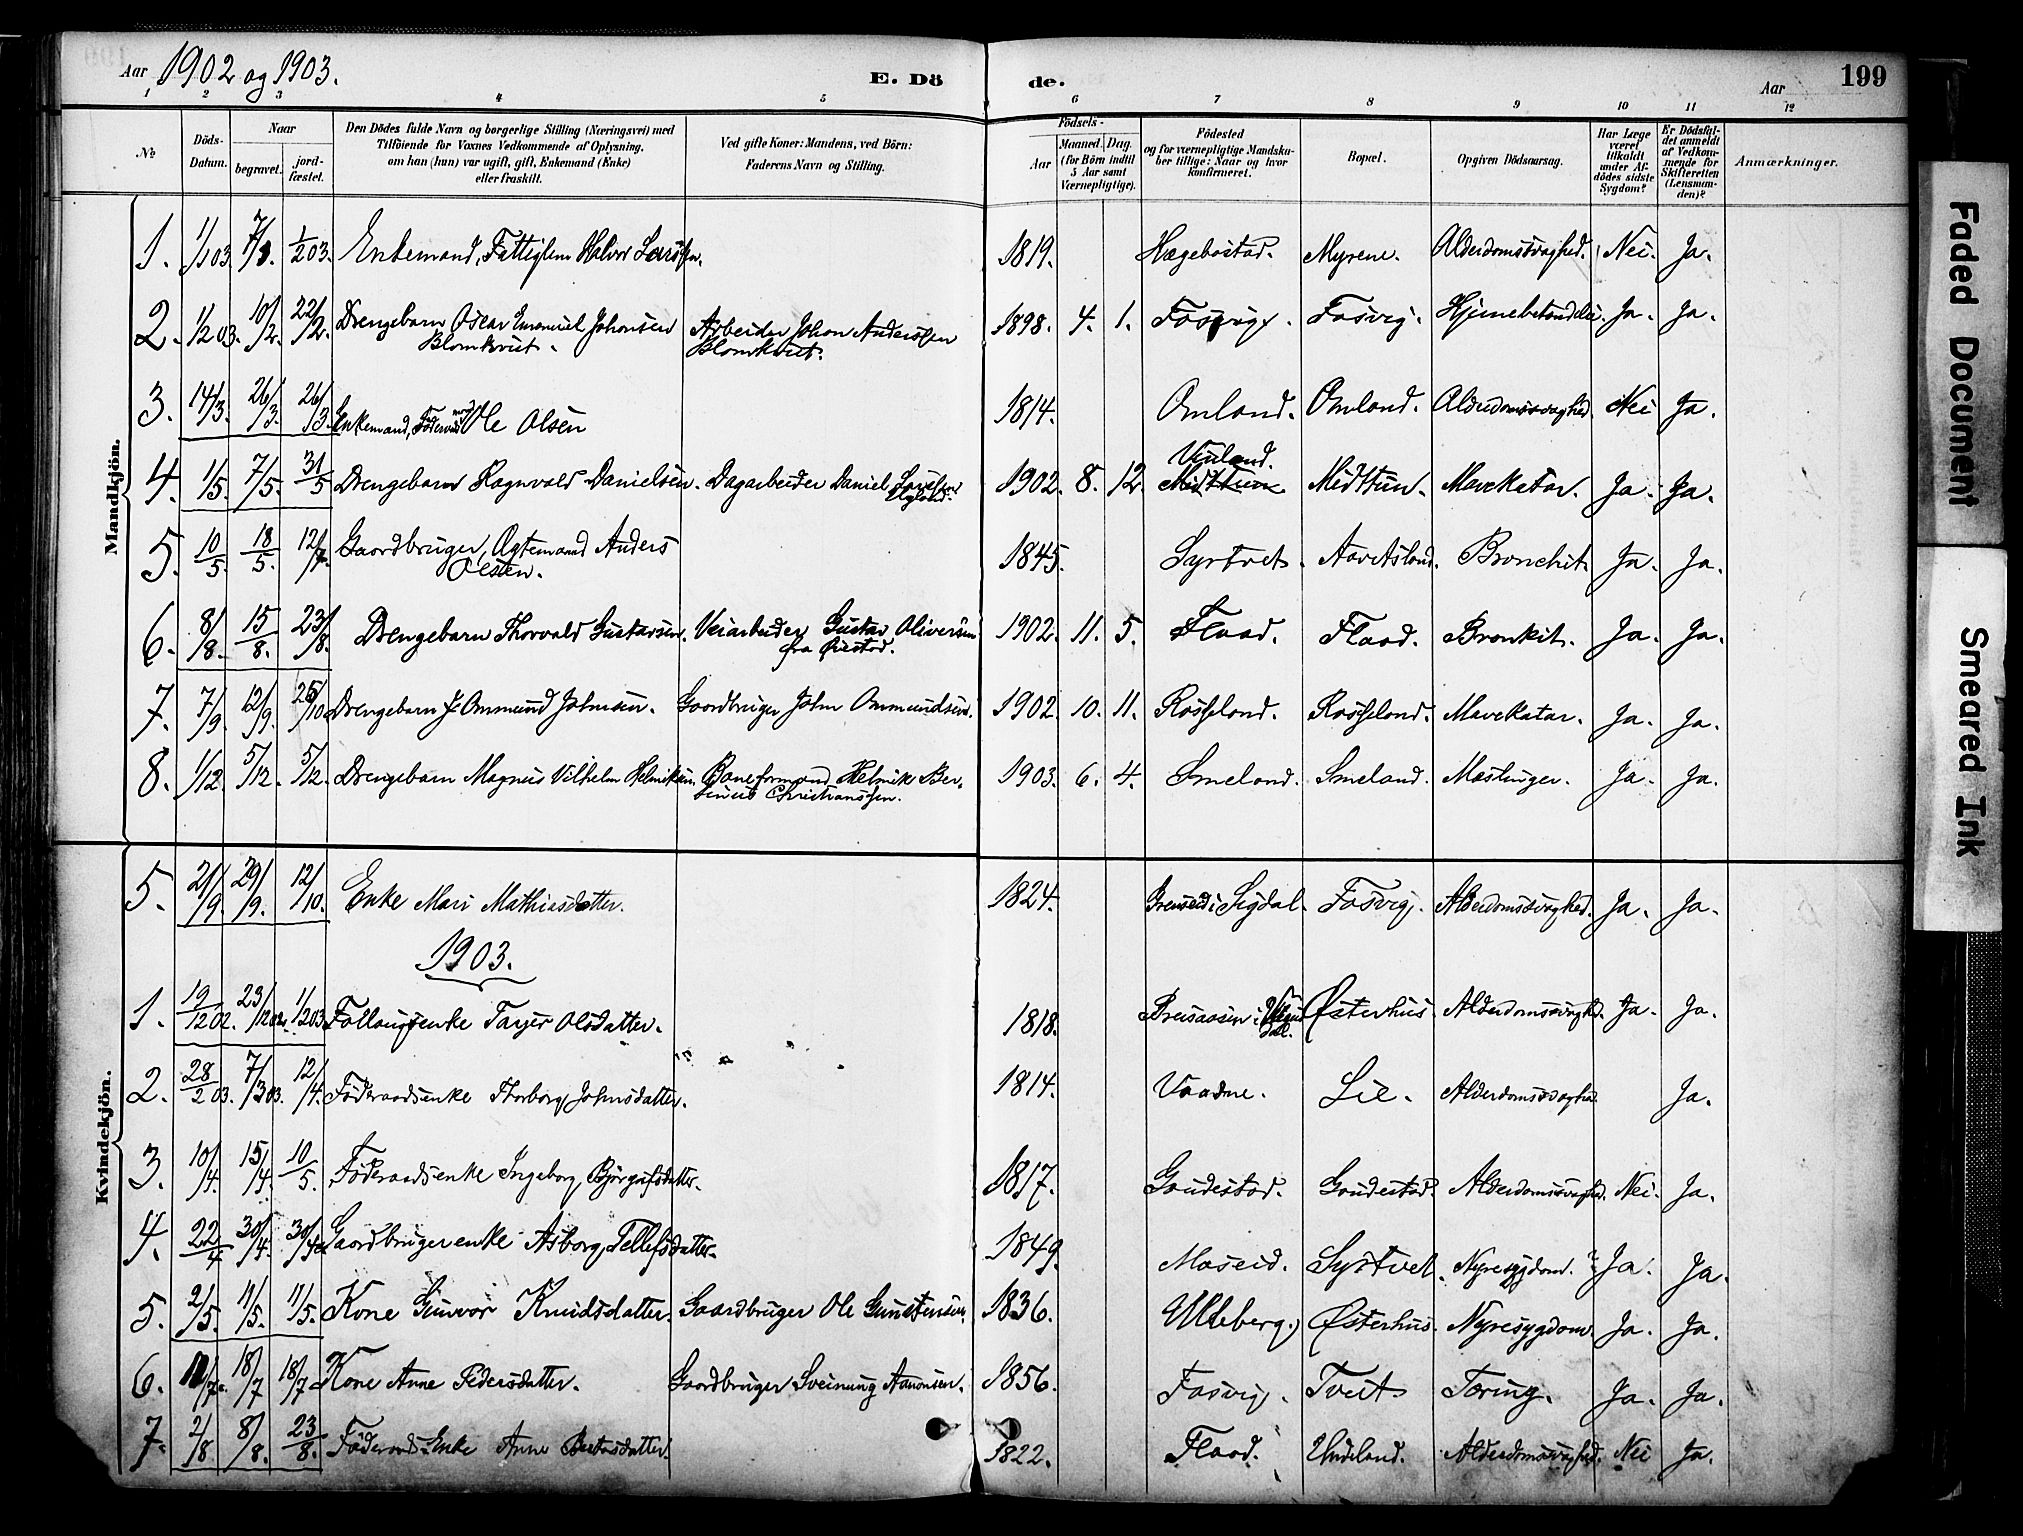 Aar 1902 og 1903. E. Dö de. Aar 199
1 2 3 4 5 6 7 8 9 10 11 12
№ Döds-Datum. Naar begravet. jord-fæstet. Den Dödes fulde Navn og borgerlige Stilling (Næringsvei) med Tilföiende for Voxnes Vedkommende af Oplysning, om han (hun) var ugift, gift, Enkemand (Enke) eller fraskilt. Ved gifte Koner: Mandens, ved Börn: Faderens Navn og Stilling. Födsels- Aar Maaned. Dag. (for Börn indtil 5 Aar samt Værnepligtige). Födested og for værnepligtige Mandska-ber tillige: Naar og hvor konfirmeret. Bopæl. Opgiven Dödsaarsag. Har Læge været tilkaldt under Af-dödes sidste Sygdom? Er Dödsfal-det anmeldt af Vedkom-mende for Skifteretten (Lensman-den)? Anmærkninger.
Mandkjön.
1. 1/1 03. 7/1. 1/2 03. Enkemand, Fattiglem Halvor Larssen. 1819. Hægebostad. Myrene. Alderdomssvaghed. Nei. Ja.
2. 1/2 03. 10/2. 22/2. Drengebarn Oscar Emanuel Johansen Arbeider Johan Anderssen 1898. 4. 1. Fosvig. Fosvig. Ja. Ja.
Blomkvist. Blomkvist.
3. 14/3. 26/3. 26/3. Enkemand, Föderaadsmand Ole Olsen 1814. Omland. Omland. Alderdomssvaghed Nei Ja.
Vinland.
4. 1/5. 7/5. 31/5 Drengebarn Ragnvald Danielsen. Dagarbeider Daniel 1902. 8. 12. Midttun Midttun. Mavekatar. Ja. Ja.
5. 10/5. 18/5. 12/7. Gaardbruger, Ægtemand Anders 1845. Syrtvet. Aavitsland. Bronchit. Ja. Ja.
Olsen.
6. 8/8. 15/8. 23/8. Drengebarn Thorvald Gustavsen. Veiarbeider Gustav Oliversen 1902. 11. 5. Flaad. Flaad. Bronkit. Ja. Ja.
fra Öiestad.
7. 7/9. 12/9. 25/10. Drengebarn Ommund Johnsen. Gaardbruger John Ommundsen. 1902. 10. 11. Rosseland. Rosseland. Mavekatar. Ja. Ja.
8. 1/12. 5/12. 5/12. Drengebarn Magnus Vilhelm Helmiksen. Baneformand Helmik Ber- 1903. 6. 4. Smeland. Smeland. Mæslinger. Ja. Ja.
Christianssen.
Kvindekjön.
5. 21/9. 29/9. 12/10. Enke Mari Mathiasdatter. 1824. i Sigdal. Fosvig. Alderdomssvaghed. Ja. Ja.
1903.
1. 19/12 02. 23/12 02. 1/2 03. Follaugsenke Tarjer Olsdatter. 1818. Østerhus. Alderdomssvaghed. Ja. Ja.
2. 28/2 03. 7/3 03. 12/4. Föderaadsenke Thorborg Johnsdatter. 1814. Vaadne. Lie. Alderdomssvaghed Ja.
3. 10/4. 15/4. 10/5. Föderaadsenke Ingeborg Björgulfsdatter. 1817. Goudestad. Goudestad. Alderdomssvaghed. Nei. Ja.
4. 22/4 30/4. 30/4. Gaardbrugerenke Asborg Tellefsdatter. 1849. Moseid. Syrtvet. Nyresygdom. Ja. Ja.
5. 2/5. 11/5. 11/5. Kone Gunvor Knudsdatter. Gaardbruger Ole Gunstensen. 1836. Uleberg. Østerhus. Nyresygdom. Ja. Ja.
6. 11/7. 18/7 18/7 Kone Anne Pedersdatter. Gaardbruger Sveinung Aanonsen. 1856. Fosvig. Tveit. Tæring. Ja. Ja.
7. 2/8. 8/8. 23/8. Föderaads-Enke Anne 1822. Flaad. Undeland. Alderdomssvaghed. Nei Ja.
Faded Document
Smeared Ink